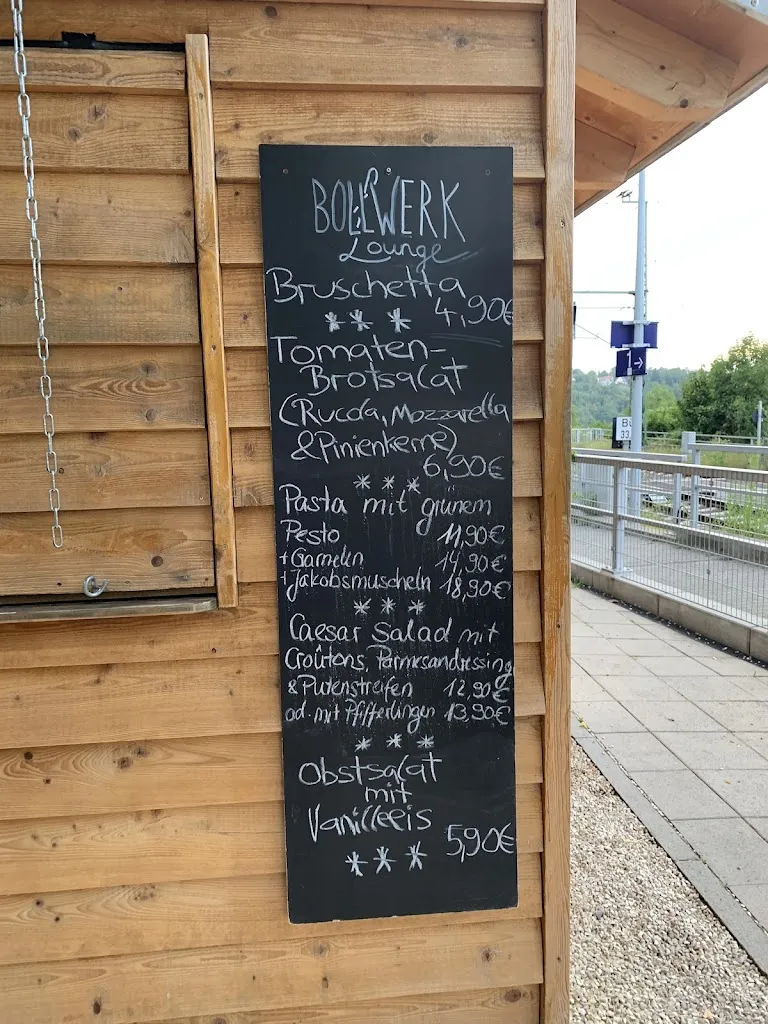 BOLLWERK
Lounge
Bruschetta
4,90€
***
Tomaten-
Brotsalat
(Rucola, Mozzarella
&Pinienkerne)
6,90€
***
Pasta mit grünem
Pesto 11,90€
+Garnelen 14,90€
+Jakobsmuscheln 18,90€
***
Caesar Salad mit
Croûtons, Parmesandressing
& Putenstreifen 12,90€
od. mit Pfifferlingen 13,90€
***
Obstsalat
mit
Vanilleeis
5,90€
***
1 →